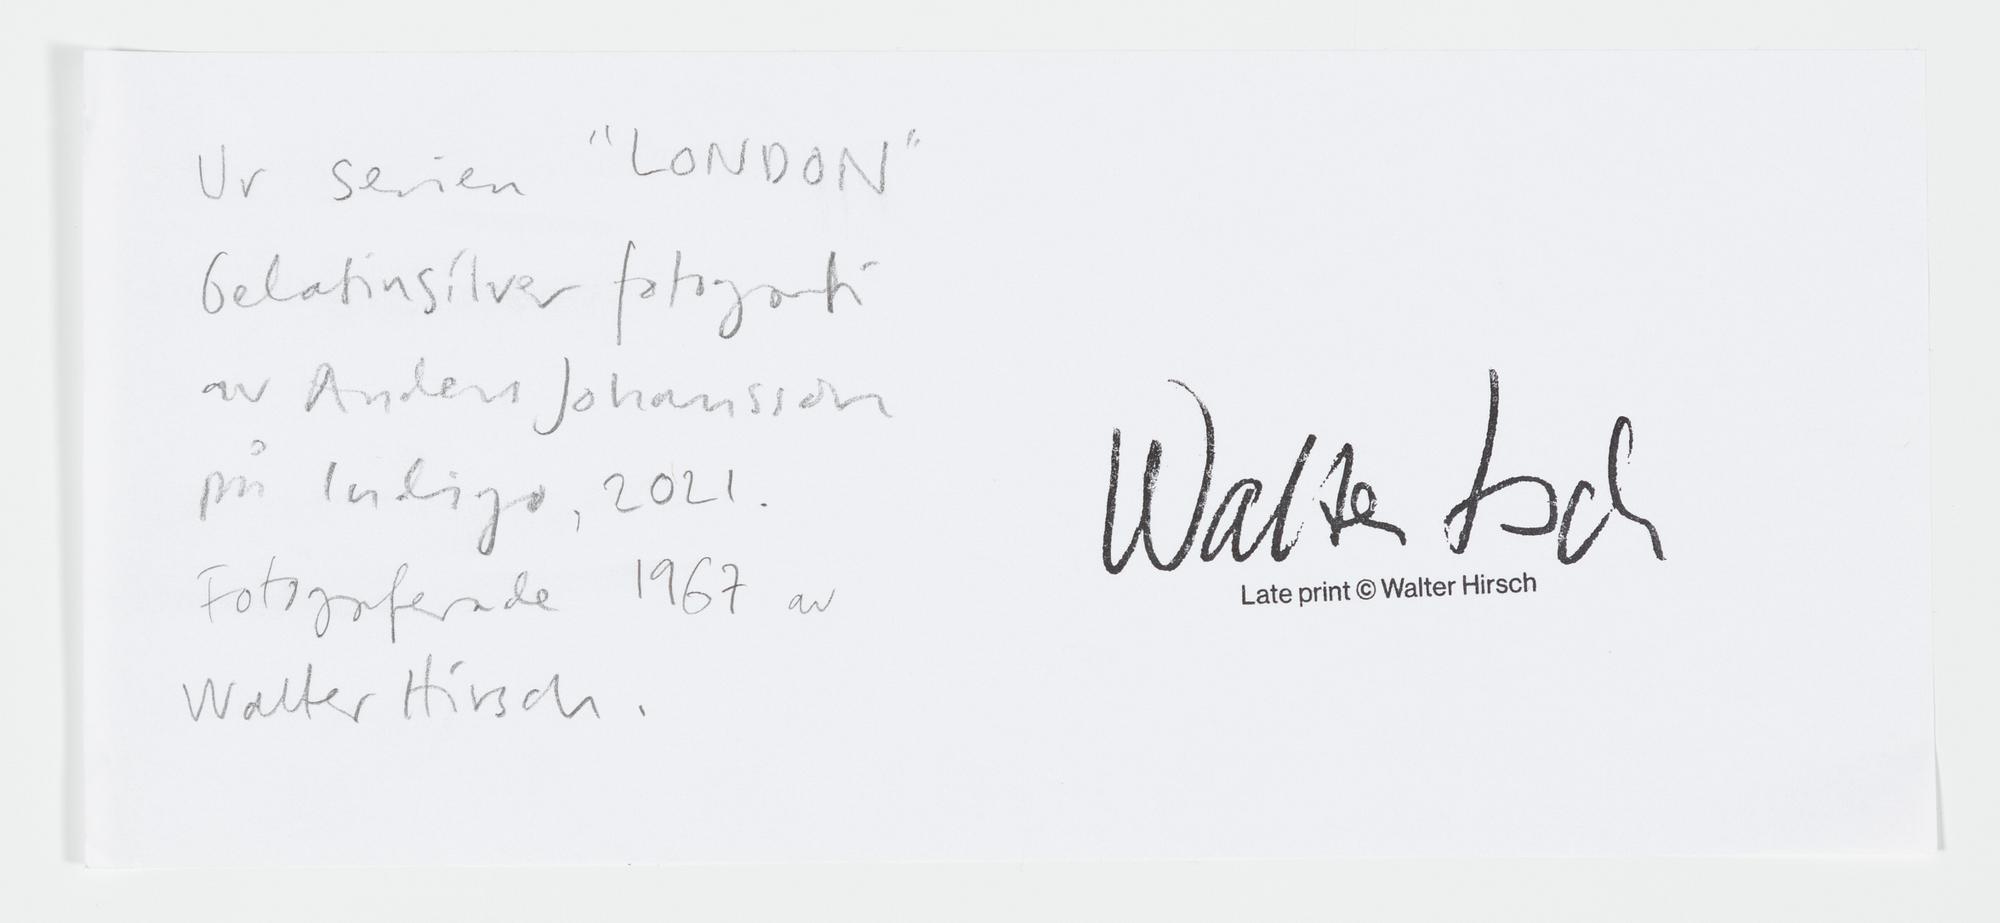 Ur serien "LONDON"
Gelatinsilver fotografi
av Anders Johansson
på Indigo, 2021.
Fotograferade 1967 av
Walter Hirsch.
Walter Hirsch
Late print © Walter Hirsch